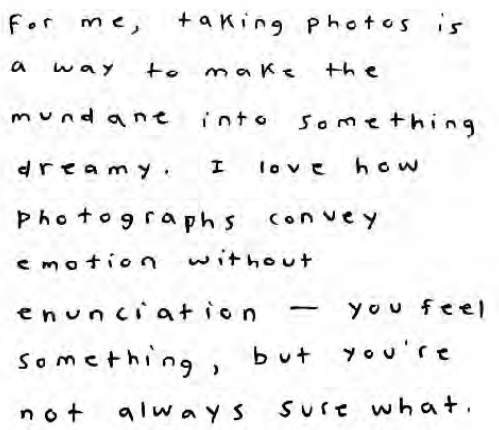 For me, taking photos is
a way to make the
mundane into something
dreamy. I love how
photographs convey
emotion without
enunciation — you feel
something, but you're
not always sure what.